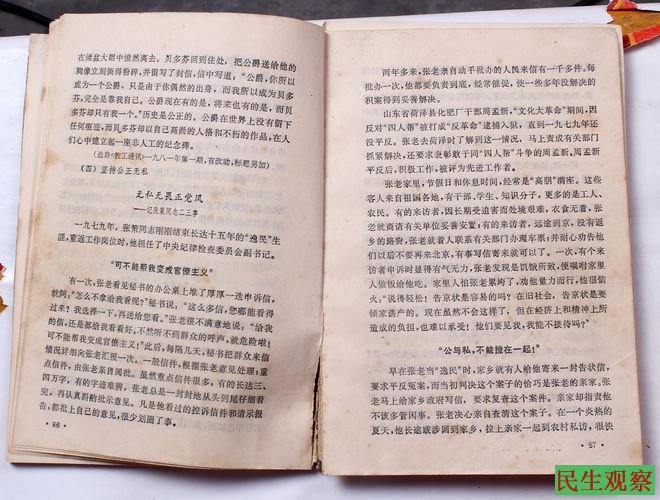 在倾盆大雨中愤然离去。贝多芬回到住处，把公爵送给他的
胸像立刻撕得粉碎，并留写了封信，信中写道：“公爵，你所以
成为一个公爵，只是由于偶然的出身，而我所以成为贝多
芬，完全是靠我自己。公爵现在有的是，将来也有的是，而贝
多芬却只有我一个。”历史是公正的。公爵在世界上没有留下
任何痕迹，而贝多芬却以自己高尚的人格和不朽的作品，在人
们心中建立起一座非人工的纪念碑。
（选自《教工通讯》一九八一年第一期，有改动，标题另加）
（四）坚持公正无私
无私无畏正党风
——记张策同志二三事
一九七九年，张策同志刚刚结束长达十五年的“逸民”生
涯，重返工作岗位时，他担任了中央纪律检查委员会副书记。
“可不能帮我变成官僚主义”
有一次，张老看见秘书的办公桌上堆了厚厚一迭申诉信，
就问：“怎么不拿给我看呢？秘书说：“这么多信，您哪能看得
过来？我选择一下，再送给您看。”张老很不满意地说：“给我
的信，还是都给我看看好。不然听不到群众的呼声，就危险啦！
可不能帮我变成官僚主义！”此后，每隔几天，秘书把群众来信
情况详细向张老汇报一次。一般信件，根据张老意见处理，重
点信件，由张老亲自阅批。虽然重点信件很多，有的长达三、
四万字，有的字迹难辨，张老总是一封封地从头到尾仔细看
完，再认真斟酌批示意见。凡是他看过的控诉信件和请示报
告，都批上自己的意见，很少划圈了事。
·86·
两年多来，张老亲自动手批办的人民来信有一千多件。每
批办一次，他都要负责到底，经常催促，使一些多年没解决的
积案得到妥善解决。
山东省菏泽县化肥厂干部周孟新，“文化大革命”期间，因
反对“四人帮”被打成“反革命”逮捕入狱，直到一九七九年还
没平反。张老去荷泽时了解到这一情况，马上责成有关部门
抓紧解决，还要求表彰敢于同“四人帮”斗争的周孟新。周孟新
平反后，积极工作，被评为先进工作者。
张老家里，节假日和休息时间，经常是“高朋”满座。这些
客人来自祖国各地，有干部、学生、知识分子，更多的是工人、
农民。有的来访者，因长期受迫害而处境艰难，衣食无着，张
老就商请有关单位妥善安置；有的来访者，远途到京，没有返
乡的路费，张老就着人联系有关部门办理车票，并耐心劝告他
们以后不要再来北京，有事写信寄来就可以了。一次，有个来
访者申诉时显得有气无力，张老发现是饥饿所致，便嘱咐家里
人做饭给他吃。家里人怕张老累垮了，劝他量力而行，他很恼
火，“说得轻松！告京状是容易的吗？在旧社会，告京状是要
倾家荡产的。现在虽然不会这样了，但在经济上和精神上所
造成的负担，也难以承受！他们要见我，我能不接待吗？”
“公与私，不能搅在一起！”
早在张老当“逸民”时，家乡就有人给他寄来一封告状信，
要求平反冤案，而当初判决这个案子的恰巧是张老的亲家。张
老马上给家乡政府写信，要求复查这个案件。亲家却指责他
不该多管闲事。张老决心亲自查清这个案子。在一个炎热的
夏天，他长途跋涉回到家乡，拉上亲家一起到农村私访，很快
·87·
民生观察